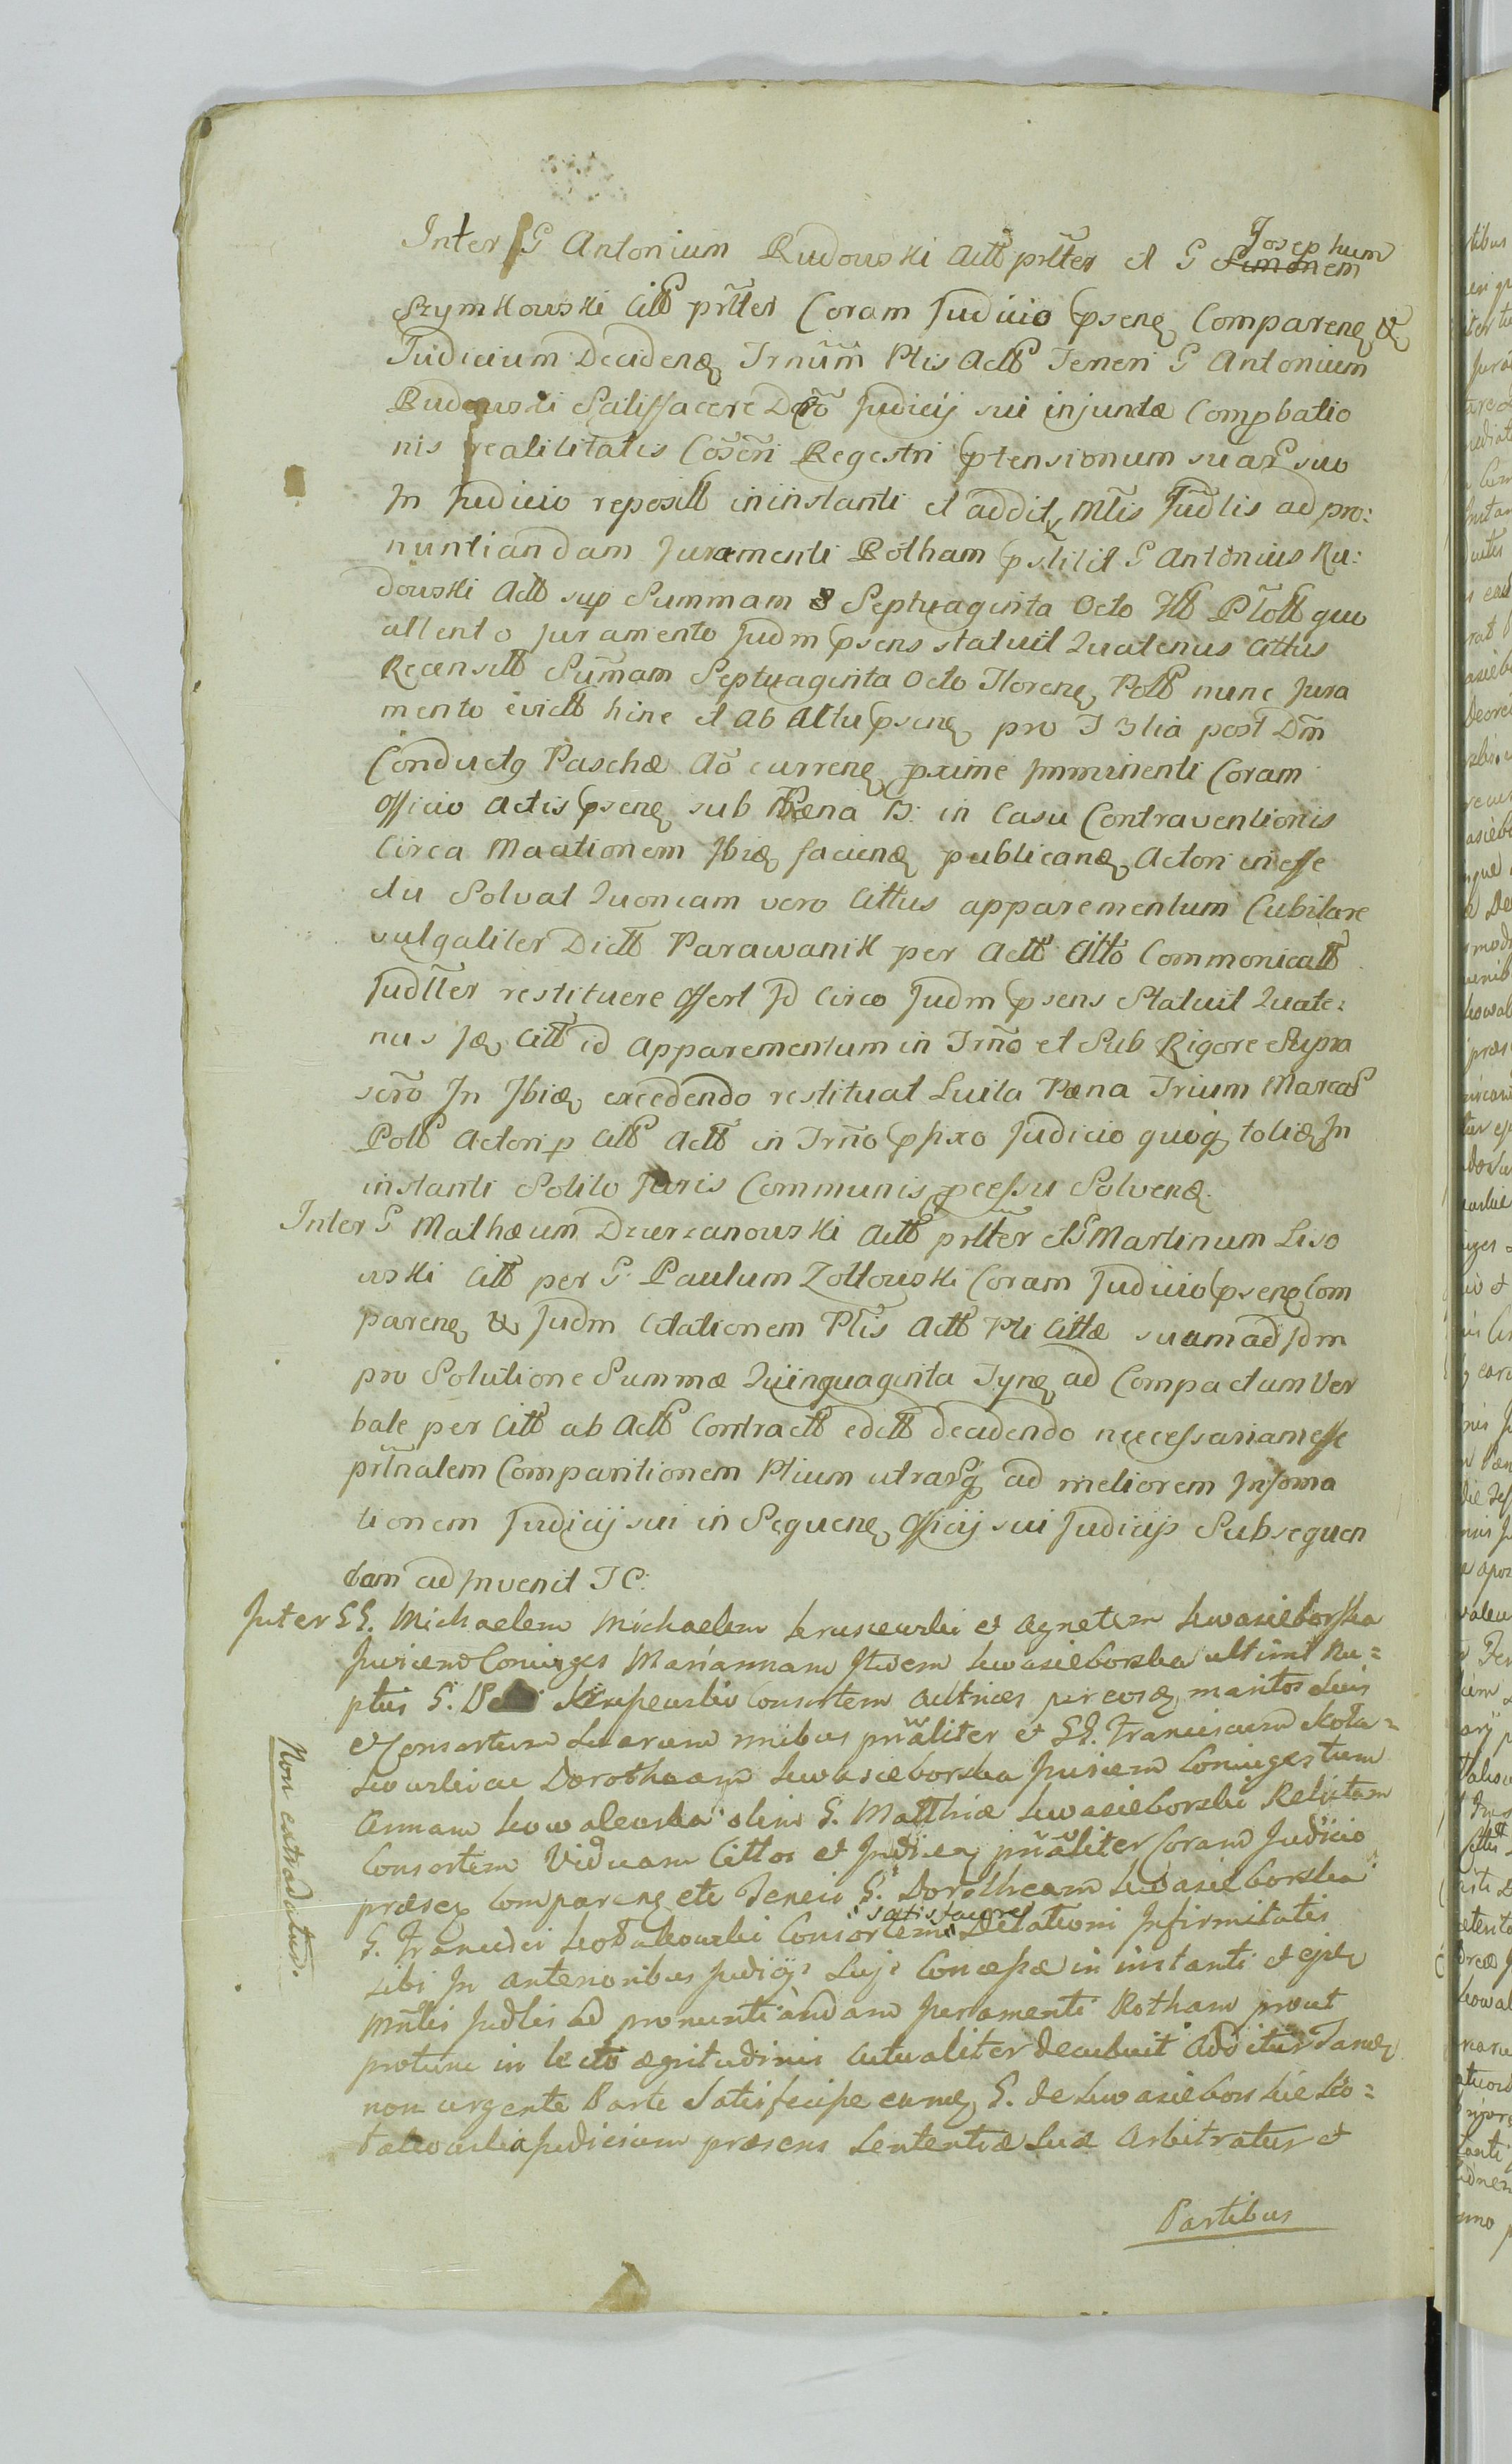 Inter G Antonium Rudowski Actt prltter et G Josephum Simonem
Szymkowski Citt prltter Coram Judicio psenq Comparenq &
Judicium Decidenq Trnum Ptis Actt Teneri G Antonium
Rudowski Satisfacere Decro Judicij sui injunctæ Compbatio
nis realititatis Coseri Regestri ptensionum suar suo
In Judicio repositt ininstanti et addit Mtis Judlis ad pro:
nuntiandam Juramenti Rotham pstitit G Antonius Ru:
dowski Actt sup Summam 8 Septuaginta Octo Fltt Plott quo
attento juramento Judm psens statuit Quatenus Cittus
Recensitt Sumam Septuaginta Octo Florenq Poltt nunc Jura
mento evictt hinc et ab Actu psenq pro F 3tia post Dm
Conductg Paschæ Ao currenq pxime Imminenti Coram
Officio Actis psenq sub Pæna B: in Casu Contraventionis
Circa Mactionem Ibiq facienq publicanq Actori ineffe
ctu Solvat Quoniam vero Cittus apparementum Cubilare
vulgaliter Dictt Parawanik per Actt Citto Commonicatt
Judtter restituere Offert Id Circo Judm psens Statuit Quate:
nus Iq Citt id Apparementum in Trno et Sub Rigore Supra
scro In Ibiq excedendo restituat Luita Pæna Trium Marcar
Poltt Actori p Citt Actt in Trno pfixo Judicio quoq toliq In
instanti Solito Juris Communis pcessu Solvenq.
Inter G Mathæum Dzierzanowski Actt prltter et G Martinum Liso
wski Citt per G. Paulum Zoltowski Coram Judicio psenq Com
parenq & Judm Citationem Ptis Actt Pti Cittæ suam ad Idm
pro Solutione Summæ Quinquaginta Tynq ad Compactum Ver
bale per Citt ab Actt Contractt editt decidendo necessariam esse
prlnalem Comparitionem Ptium utrarq ad meliorem Informa
tionem Judicij sui in Sequenq Officij sui Judicijs Subsequen
dam adinvenit IC:
Inter GG. Michaelem Michaelem Kruszewski et Agnetem Kwasieborska
Juvicem Coniuges Mariannam Itidem Kwasieborska ultimi Nu=
ptus G. Krupewski Consortem Actrices per eosq maritos Suis
et Consortum Suarum nnibus prnaliter et GG. Franciscum Kota=
kowski ac Dorotheam Kwasieborska Juvicem Coniuges tum
Annam Kowalewska olim G. Matthiæ Kwasieborski Relictam
Consortem Viduam Cittos et Judicq prnaliter Coram Judicio
præseq Comparenq etc Teneri G. Dorotheam Kwasieborska
G. Francisci Kotakowski Consortem satisfacere Dilationi Infirmitatis
sibi In anterioribus Judicijs Suis Concessæ in instanti et ejdq
Mnlis Judlis ad pronuntiandam Juramenti Rotham prout
protunc in lecto ægritudinis actualiter decubuit Additur Tanq
non urgente Parte Satisfecisse eamq G. de Kwasieborskie Ko=
takowska Judicium præsens Sententiæ Suæ Arbitratur et
Partibus
Non extradatur.